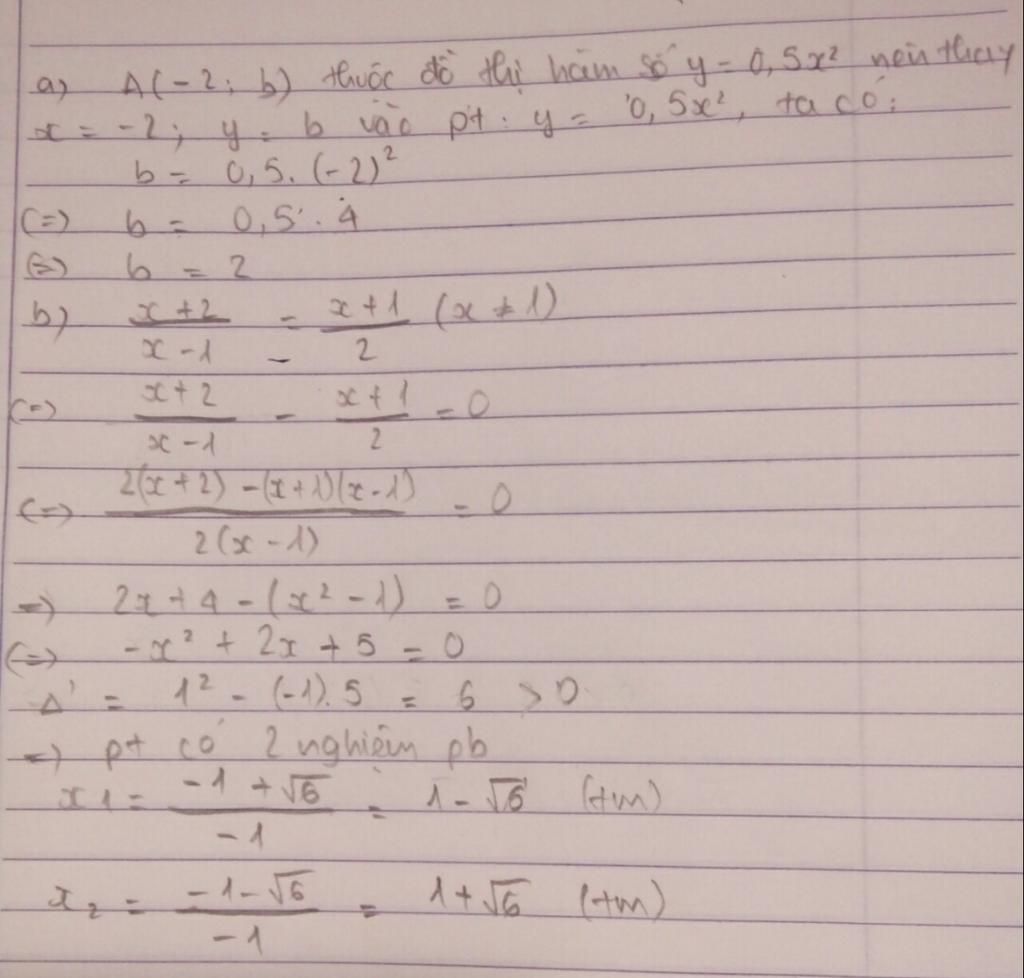 a) A(-2; b) thuộc đồ thị hàm số y = 0,5x² nên thay
x = -2; y = b vào pt: y = 0,5x², ta có:
b = 0,5. (-2)²
(=) b = 0,5 . 4
(=) b = 2
b) \frac{x+2}{x-1} = \frac{x+1}{2} (x ≠ 1)
(=) \frac{x+2}{x-1} - \frac{x+1}{2} = 0
(=) \frac{2(x+2) -(x+1)(x-1)}{2(x-1)} = 0
=) 2x + 4 - (x² - 1) = 0
(=) -x² + 2x + 5 = 0
Δ' = 1² - (-1).5 = 6 > 0
=) pt có 2 nghiệm pb
x1 = \frac{-1 + √6}{-1} = 1 - √6 (tm)
x₂ = \frac{-1 - √6}{-1} = 1 + √6 (tm)